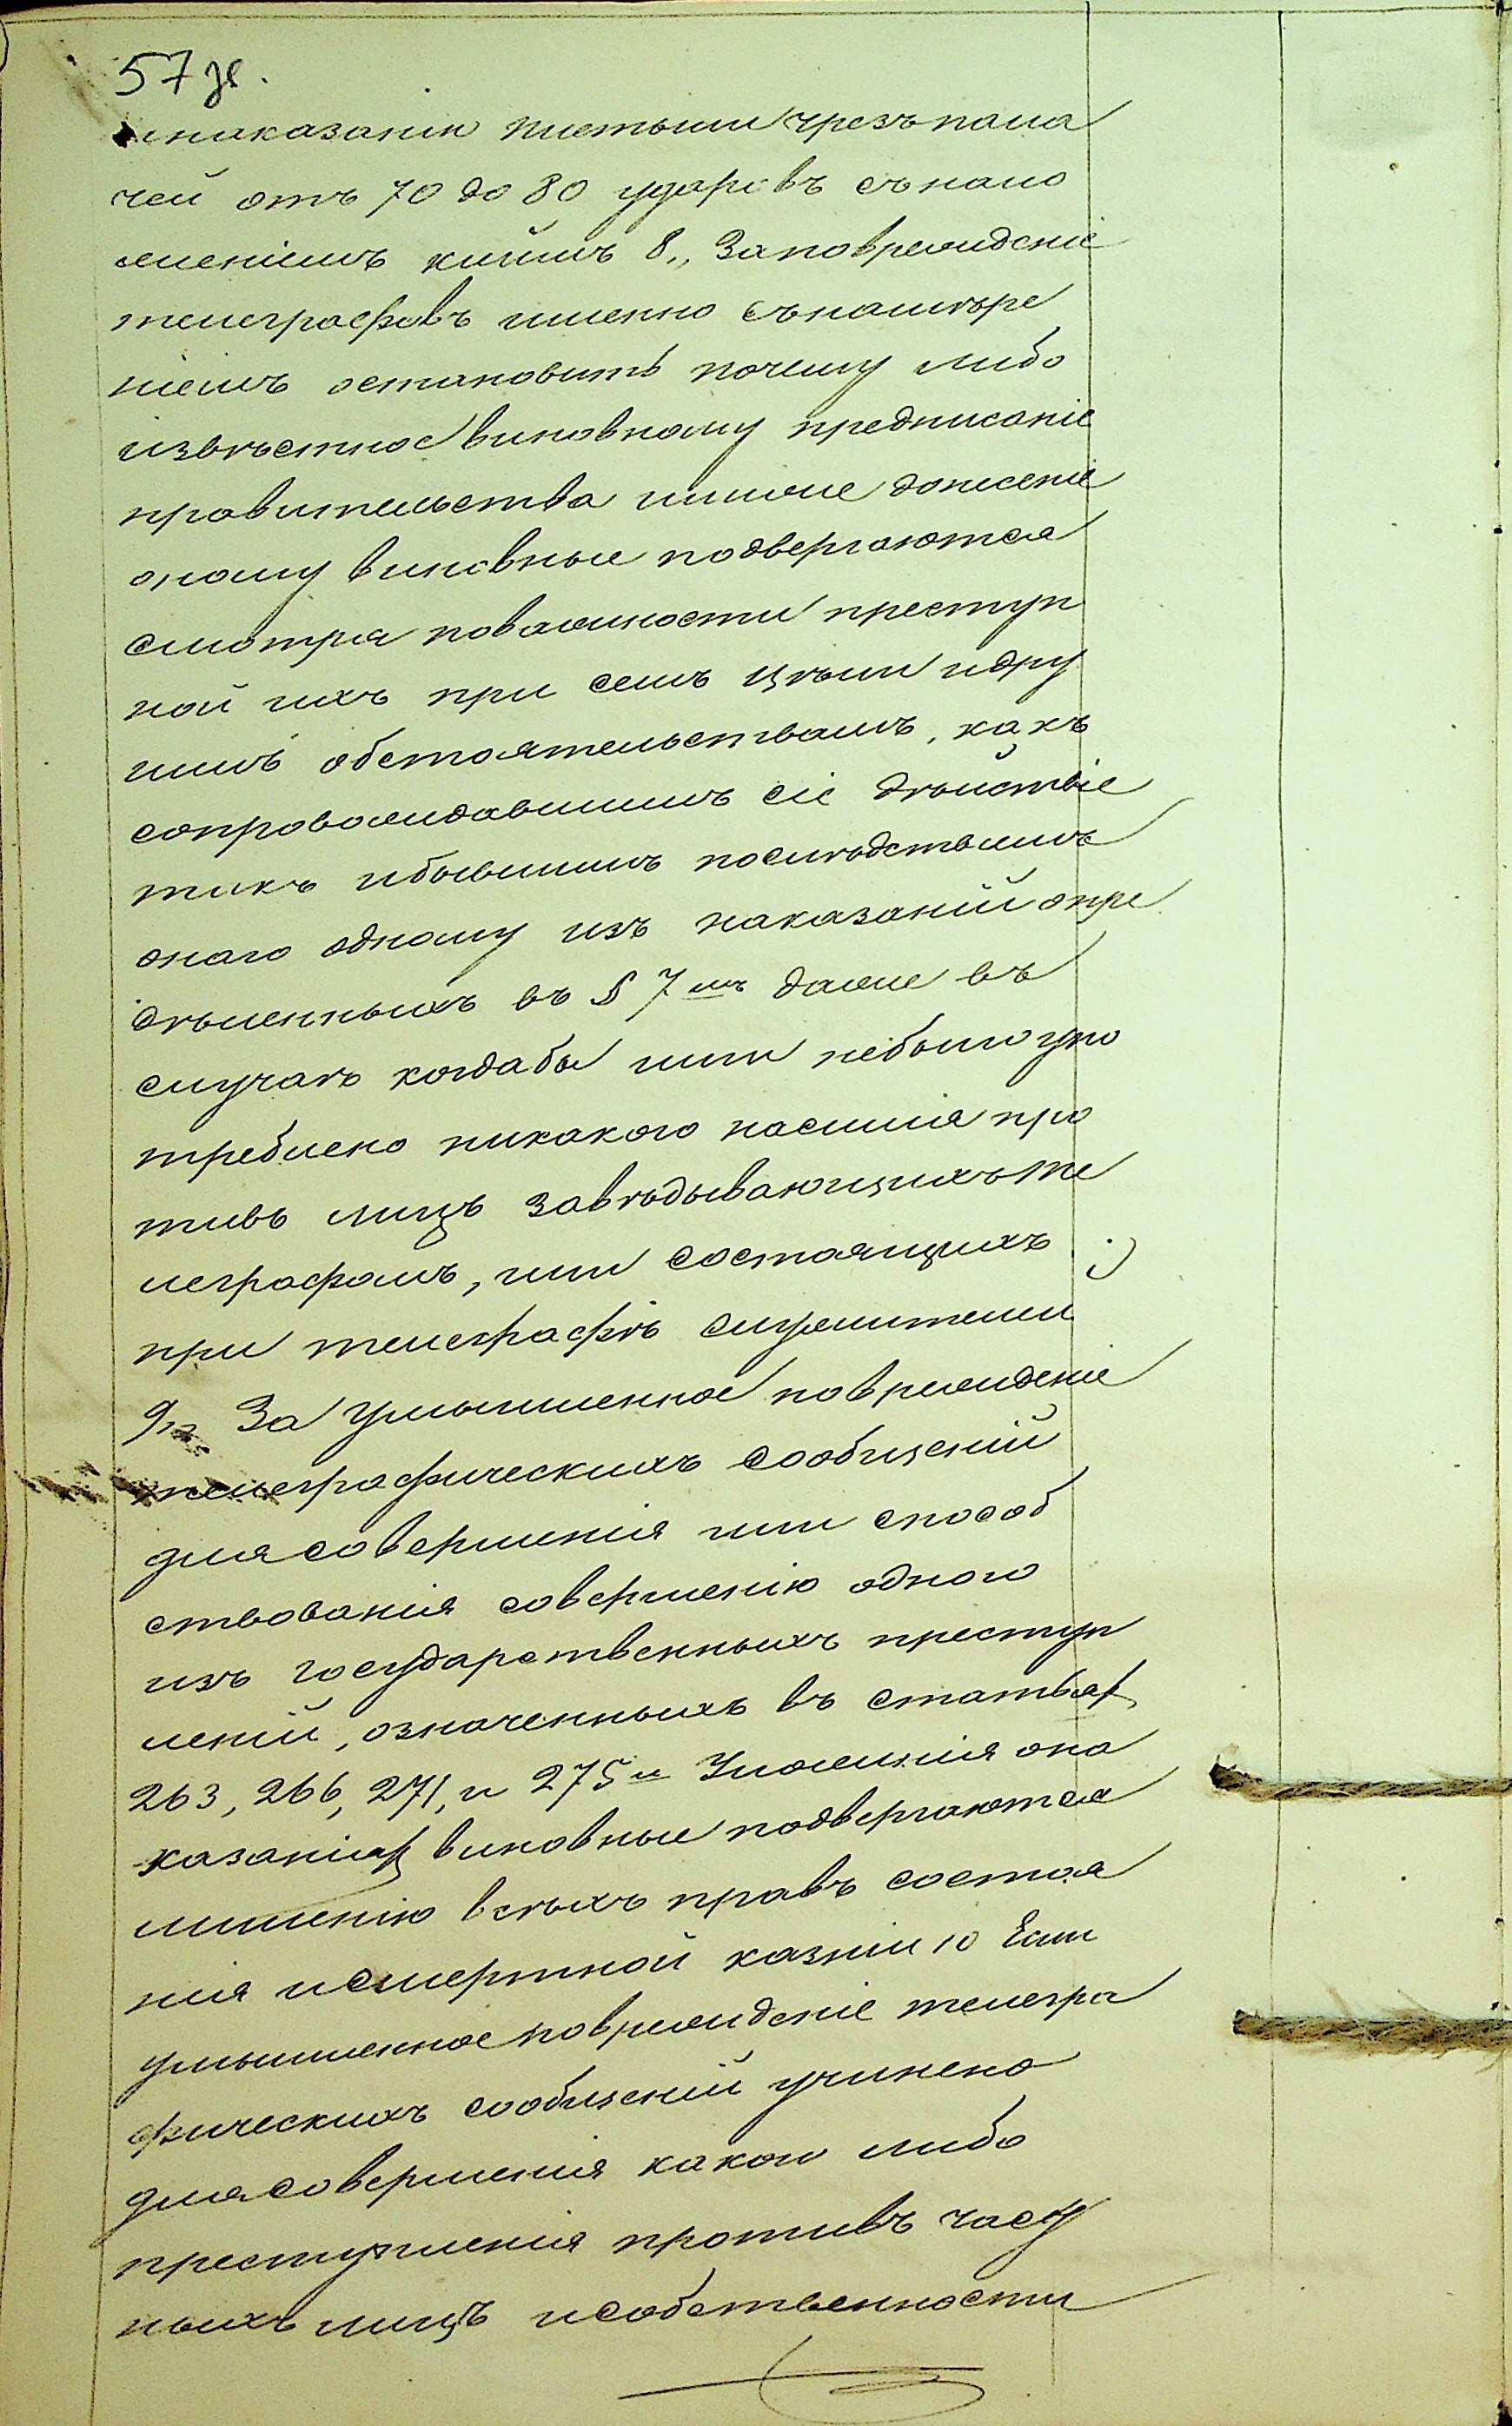 57 зв.
и наказанію плетьми чрезъ пала
чей отъ 70 до 80 ударовъ съ нало
женіемъ клеймъ 8,, За поврежденіе
телеграфовъ именно съ намѣре
ніемъ остановить почему либо
извѣстное виновному предписаніе
правительства или же донесеніе
оному виновные подвергаются
смотря по важности преступ
ной ихъ при семъ цѣли и дру
гимъ обстоятельствамъ, какъ
сопровождавшимъ сіе дѣйствіе
такъ и бывшимъ послѣдствіемъ
онаго одному изъ наказаній опре
дѣленныхъ въ § 7мъ даже въ
случаѣ когда бы ими не было упо
треблено никакого насилія про
тивъ лицъ завѣдывающихъ те
леграфомъ, или состоящихъ
при телеграфѣ служителей
9,, За умышленное поврежденіе
телеграфическихъ сообщеній
для совершенія или способ
ствованія совершенію одного
изъ государственныхъ преступ
леній, означенныхъ въ статьях
263, 266, 271, и 275й Уложенія о на
казаніях виновные подвергаются
лишенію всѣхъ правъ состоя
нія и смертной казни 10 Если
умышленное поврежденіе телегра
фическихъ сообщеній учинено
для совершенія какого либо
преступленія противъ част
ныхъ лицъ и собственности